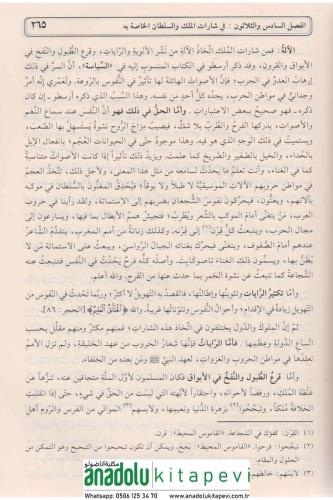 الفصل السادس والثلاثون : في شارات الملك والسلطان الخاصة به
٣٦٥
الآلة: فمن شارات المُلك اتّخاذُ الآلة مِن نَشْر الألوية والرَّايات، وقرع الطُّبول والنَّفخ في
الأبواق والقرون، وقد ذكر أرسطو في الكتاب المنسوب إليه في «السِّياسة» أنَّ السرَّ في ذلك
إرهابُ العدوّ في الحرب؛ فإنَّ الأصوات الهائلة لها تأثيرٌ في النُّفوس بالرَّوعة. ولعمري إنَّه أمرٌ
وجدانيٌّ في مواطن الحرب، يجدُه كلُّ أحدٍ من نفسه. وهذا السَّبب الذي ذكره أرسطو ـ إن كان
ذكره ـ فهو صحيحٌ ببعض الاعتبارات. وأمَّا الحقُّ في ذلك فهو أنَّ النَّفس عند سماع النَّغم
والأصوات، يدركها الفرحُ والطَّربُ بلا شكّ، فيصيب مزاجَ الرُّوح نشوةٌ يستسهل بها الصَّعب،
ويستميت في ذلك الوجه الذي هو فيه. وهذا موجودٌ حتّى في الحيوانات العُجْم؛ بانفعال الإبل
بالحُداء، والخيل بالصَّفير والصَّريخ كما علمت. ويزيد ذلك تأثيراً إذا كانت الأصواتُ متناسبةً
كما في الغناء، وأنت تعلم ما يَحدُث لسامعه من مثل هذا المعنى، ولأجل ذلك، تتَّخذ العجمُ
في مواطن حروبهم الآلات الموسيقيَّة لا طبلاً ولا بوقاً؛ فيُحدِق المغنُّون بالسُّلطان في موكبه
بآلاتهم، ويغنُّون، فيحرِّكون نفوسَ الشُّجعان بضربهم إلى الاستماتة. ولقد رأينا في حروب
العرب، مَن يتغنَّى أمامَ الموكب بالشِّعر ويُطرِب؛ فتجيش هممُ الأبطال بما فيها، ويسارعون إلى
مجال الحرب، وينبعث كلُّ قِرْن(١) إلى قِرْنه. وكذلك زناتة من أمم المغرب، يتقدَّم الشَّاعرُ
عندهم أمامَ الصُّفوف، ويتغنَّى فيحرِّك بغنائه الجبالَ الرَّواسيَ، ويبعث على الاستماتة مَن لا
يظنُّ بها، ويسمُّون ذلك الغناء تاصوكايت. وأصلُ ذلك كلِّه فرحٌ يَحْدُث في النَّفس فتنبعث عنه
الشَّجاعة كما تنبعثُ عن نشوة الخمر بما حدث عنها من الفرح. والله أعلم.
وأمَّا تكثيرُ الرَّايات وتلوينُها وإطالتُها، فالقصدُ به التَّهويلُ لا أكثر؛ وربَّما يَحدُث في النُّفوس من
التَّهويل زيادةٌ في الإقدام؛ وأحوالُ النُّفوس وتلويناتُها غريبةٌ. والله ﴿الْخَلَّاقُ الْعَلِيمُ﴾ [الحجر: ٨٦].
ثمَّ إنَّ الملوكَ والدُّول يختلفون في اتّخاذ هذه الشَّارات؛ فمنهم مكثرٌ ومنهم مقلِّل بحسب
اتّساع الدَّولة وعِظَمها. فأمَّا الرَّايات فإنَّها شعارُ الحروب من عهد الخليقة، ولم تزل الأممُ
تعقدُها في مواطن الحروب والغزوات، لعهد النبيّ ﷺ ومَن بعده من الخلفاء.
وأمَّا قرعُ الطُّبول والنَّفخُ في الأبواق فكان المسلمون لأوّل الملَّة متجافين عنه، تنزُّهاً عن
غلظة المُلك، ورفضاً لأحواله، واحتقاراً لأبَّهته التي ليست من الحقّ في شيء، حتى إذا انقلبت
الخلافةُ مُلكاً، وتبجَّحوا(٢) بزهرة الدُّنيا ونعيمها، ولابسهم(٣) الموالي من الفرس والرُّوم أهل
(١) القِرْن: كفؤك في الشجاعة. «القاموس المحيط»: قرن.
(٢) تبجحوا: فرحوا. «القاموس المحيط»: بجح. ويمكن أن تكون تبحبحوا من التمكن في
الحلول والمقام.
(٣) لابسهم: خالطهم.
مكتبة اناضولو
anadolu kitapevi
Whatsapp: 0506 125 34 70 www.anadolukitapevi.com